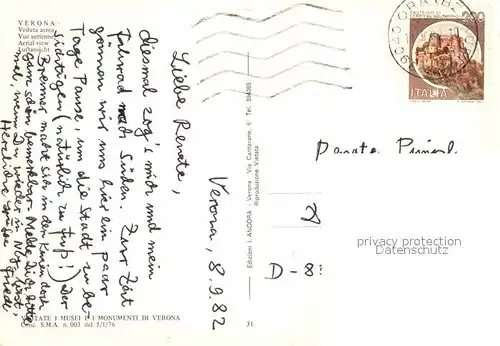 VERONA
Veduta aerea
Vue aérienne
Aerial view
Luftansicht
Verona, 8.9.82
Liebe Renate,
diesmal zog's mich und mein
Fahrrad nach Süden. Zur Zeit
gönnen wir uns hier ein paar
Tage Pause, um die Stadt zu be-
sichtigen (natürlich zu Fuß!) Der
Brenner macht sich in den Knien doch
ganz schön bemerkbar. Melde Dich bitte
mal, wenn Du wieder in Nbg. bist.
Herzliche Grüße
VISITATE I MUSEI E I MONUMENTI DI VERONA
Conc. S.M.A. n. 003 del 5/1/76
31
Edizioni I. ANCORA - Verona - Via Cantarane, 6 Tel.
Riproduzione Vietata
200
ITALIA
D-8
privacy protection
Datenschutz